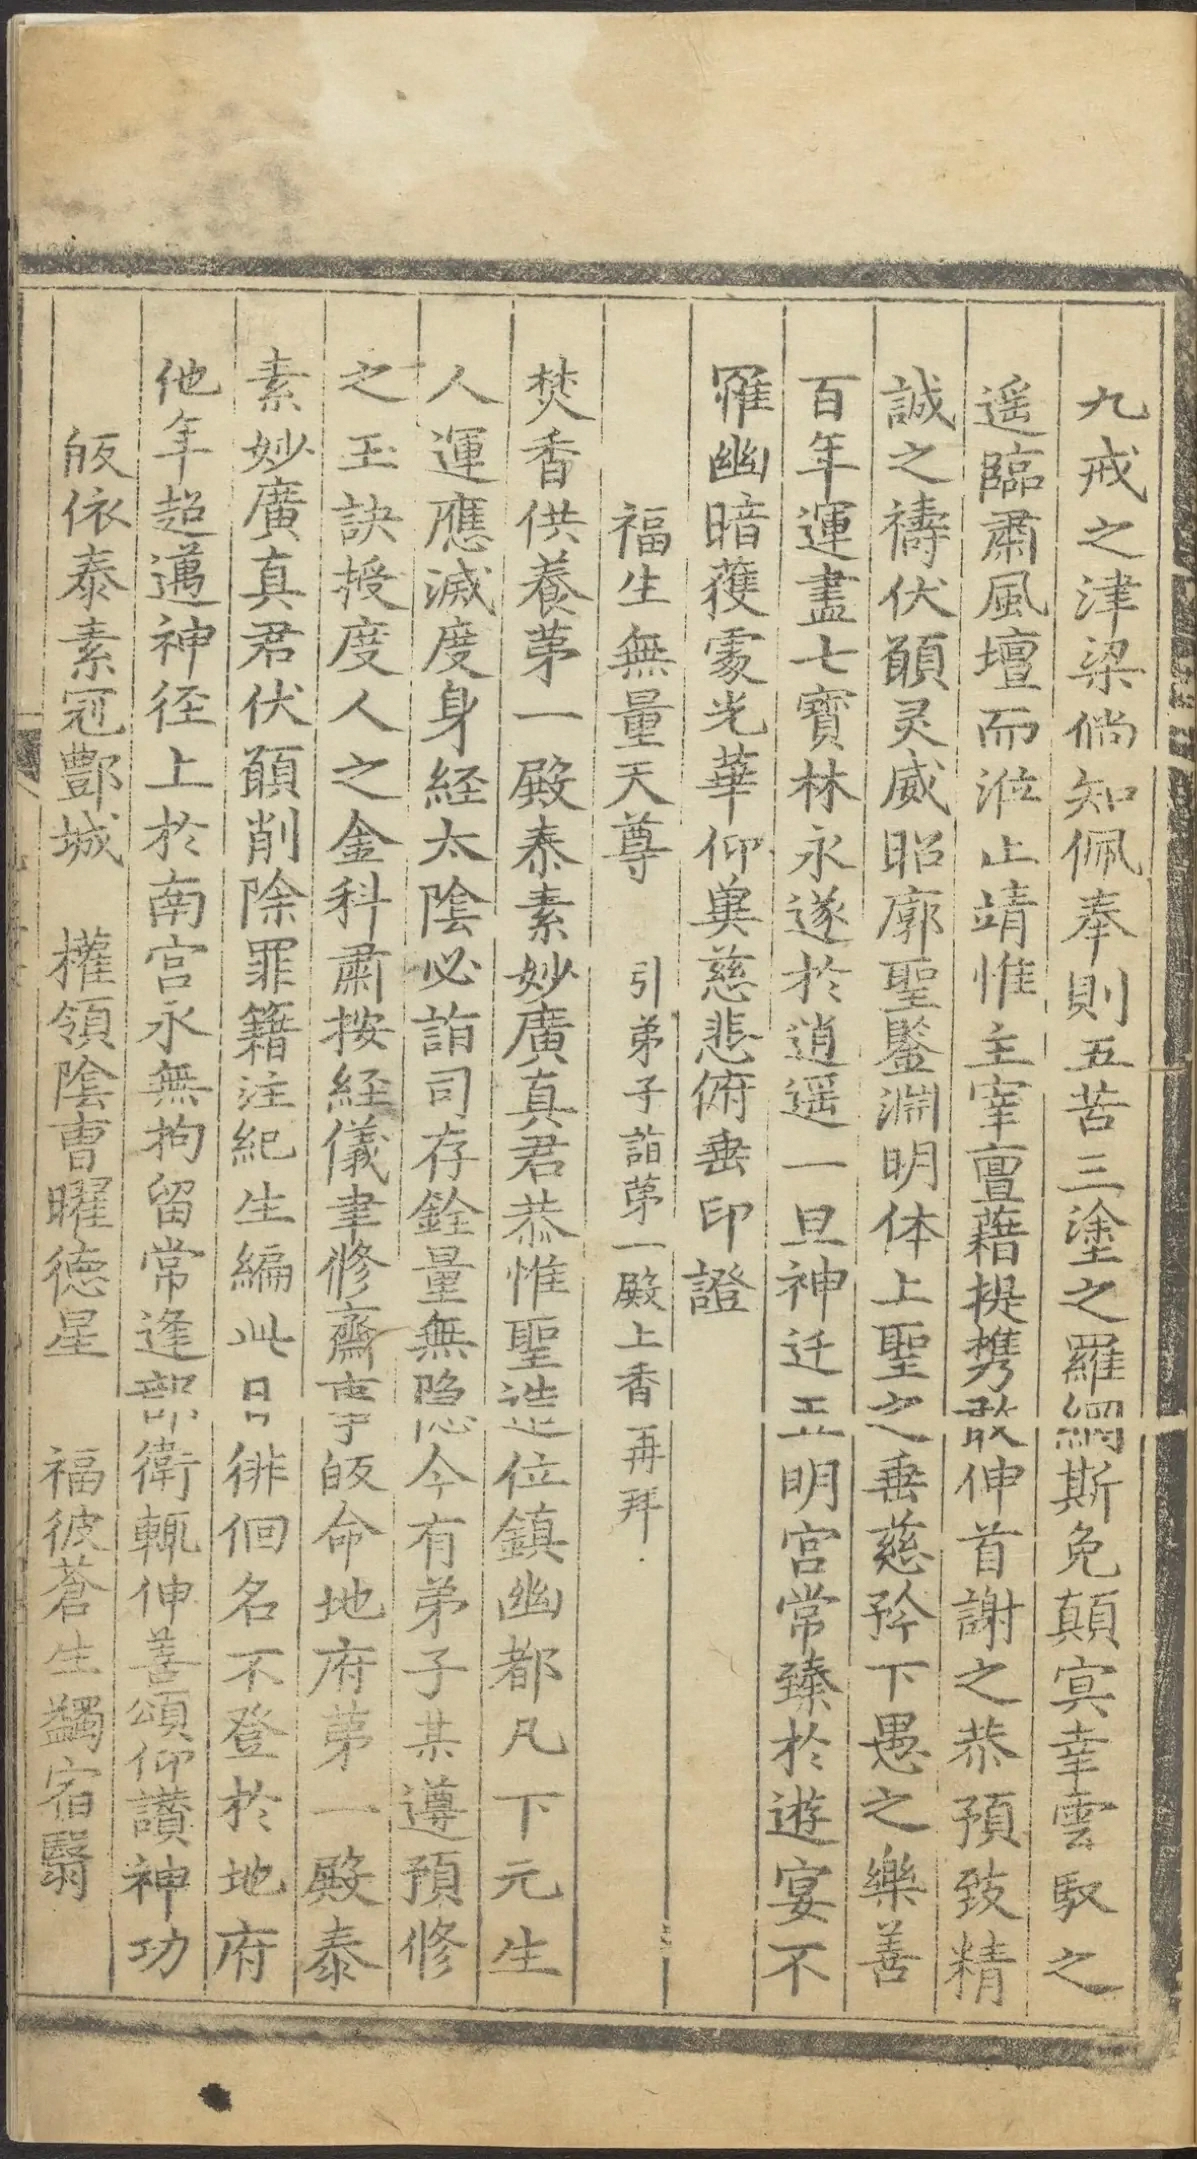 九戒之津梁倘知佩奉則五苦三塗之羅網斯免顛㝠幸雲馭之
遥臨肅風壇而涖止靖惟主宰亶藉提携敢伸首謝之恭預致精
誠之禱伏願灵威昭廓聖鑒淵明体上聖之垂慈矜下愚之樂善
百年運盡七寳林永遂於逍遥一旦神迁五明宫常臻於遊宴不
罹幽暗獲䝉光華仰兾慈悲俯垂印證
福生無量天尊 引弟子詣苐一殿上香再拜
焚香供養苐一殿泰素妙廣真君恭惟聖造位鎮幽都凡下元生
人運應滅度身経太隂必詣司存銓量無隐今有弟子某遵預修
之玉訣授度人之金科肅按経儀聿修齋事皈命地府苐一殿泰
素妙廣真君伏願削除罪籍注紀生編此日徘徊名不登於地府
他年超邁神径上於南宫永無拘留常逢部衛輒伸善頌仰讃神功
皈依泰素冠酆城 權領隂曺曜徳星 福彼蒼生蠲宿翳